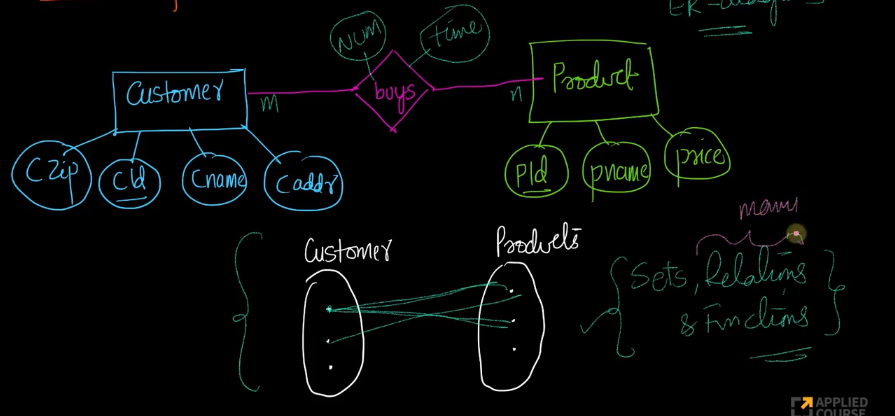 ER-diag
NUM
time
Customer
m
buys
n
Product
CZip
CId
Cname
Caddr
PId
pname
price
many
Customer
Products
{ Sets, Relations
& Functions }
APPLIED
COURSE